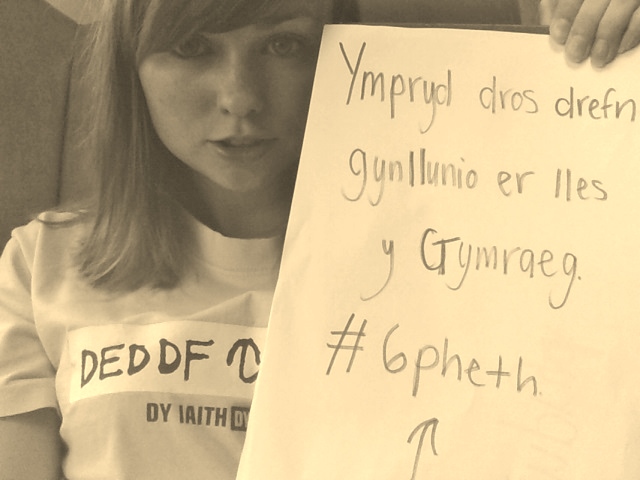 Ympryd dros drefn
gynllunio er lles
y Gymraeg.
#6pheth
DEDDF
DY IAITH DY